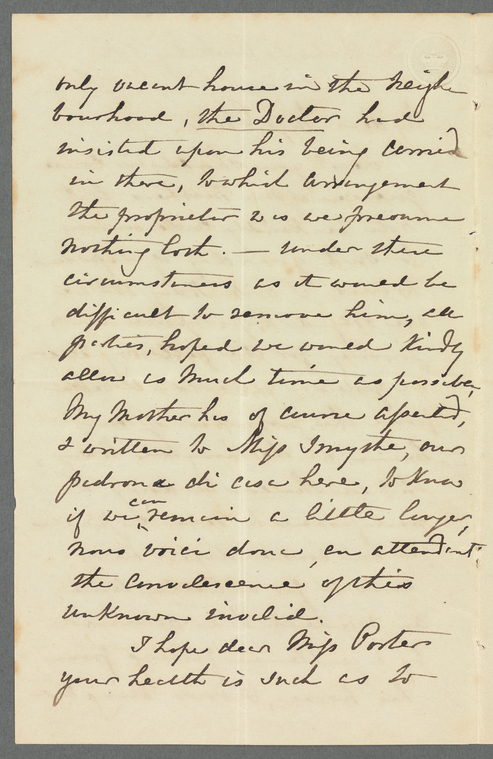 only vacant house in the Neigh
bourhood, the Doctor had
insisted upon his being carried
in there, to which arrangement
the proprietor was we presume
nothing loth. — Under these
circumstances as it would be
difficult to remove him, all
parties, hoped we would Kindly
allow as much time as possible,
My Mother has of course assented,
& written to Miss Smythe, our
padrona di casa here, to know
can
if we remain a little longer,
nous voici donc, en attendant
the convalescence of this
unknown invalid.
I hope dear Miss Porter
your health is such as to